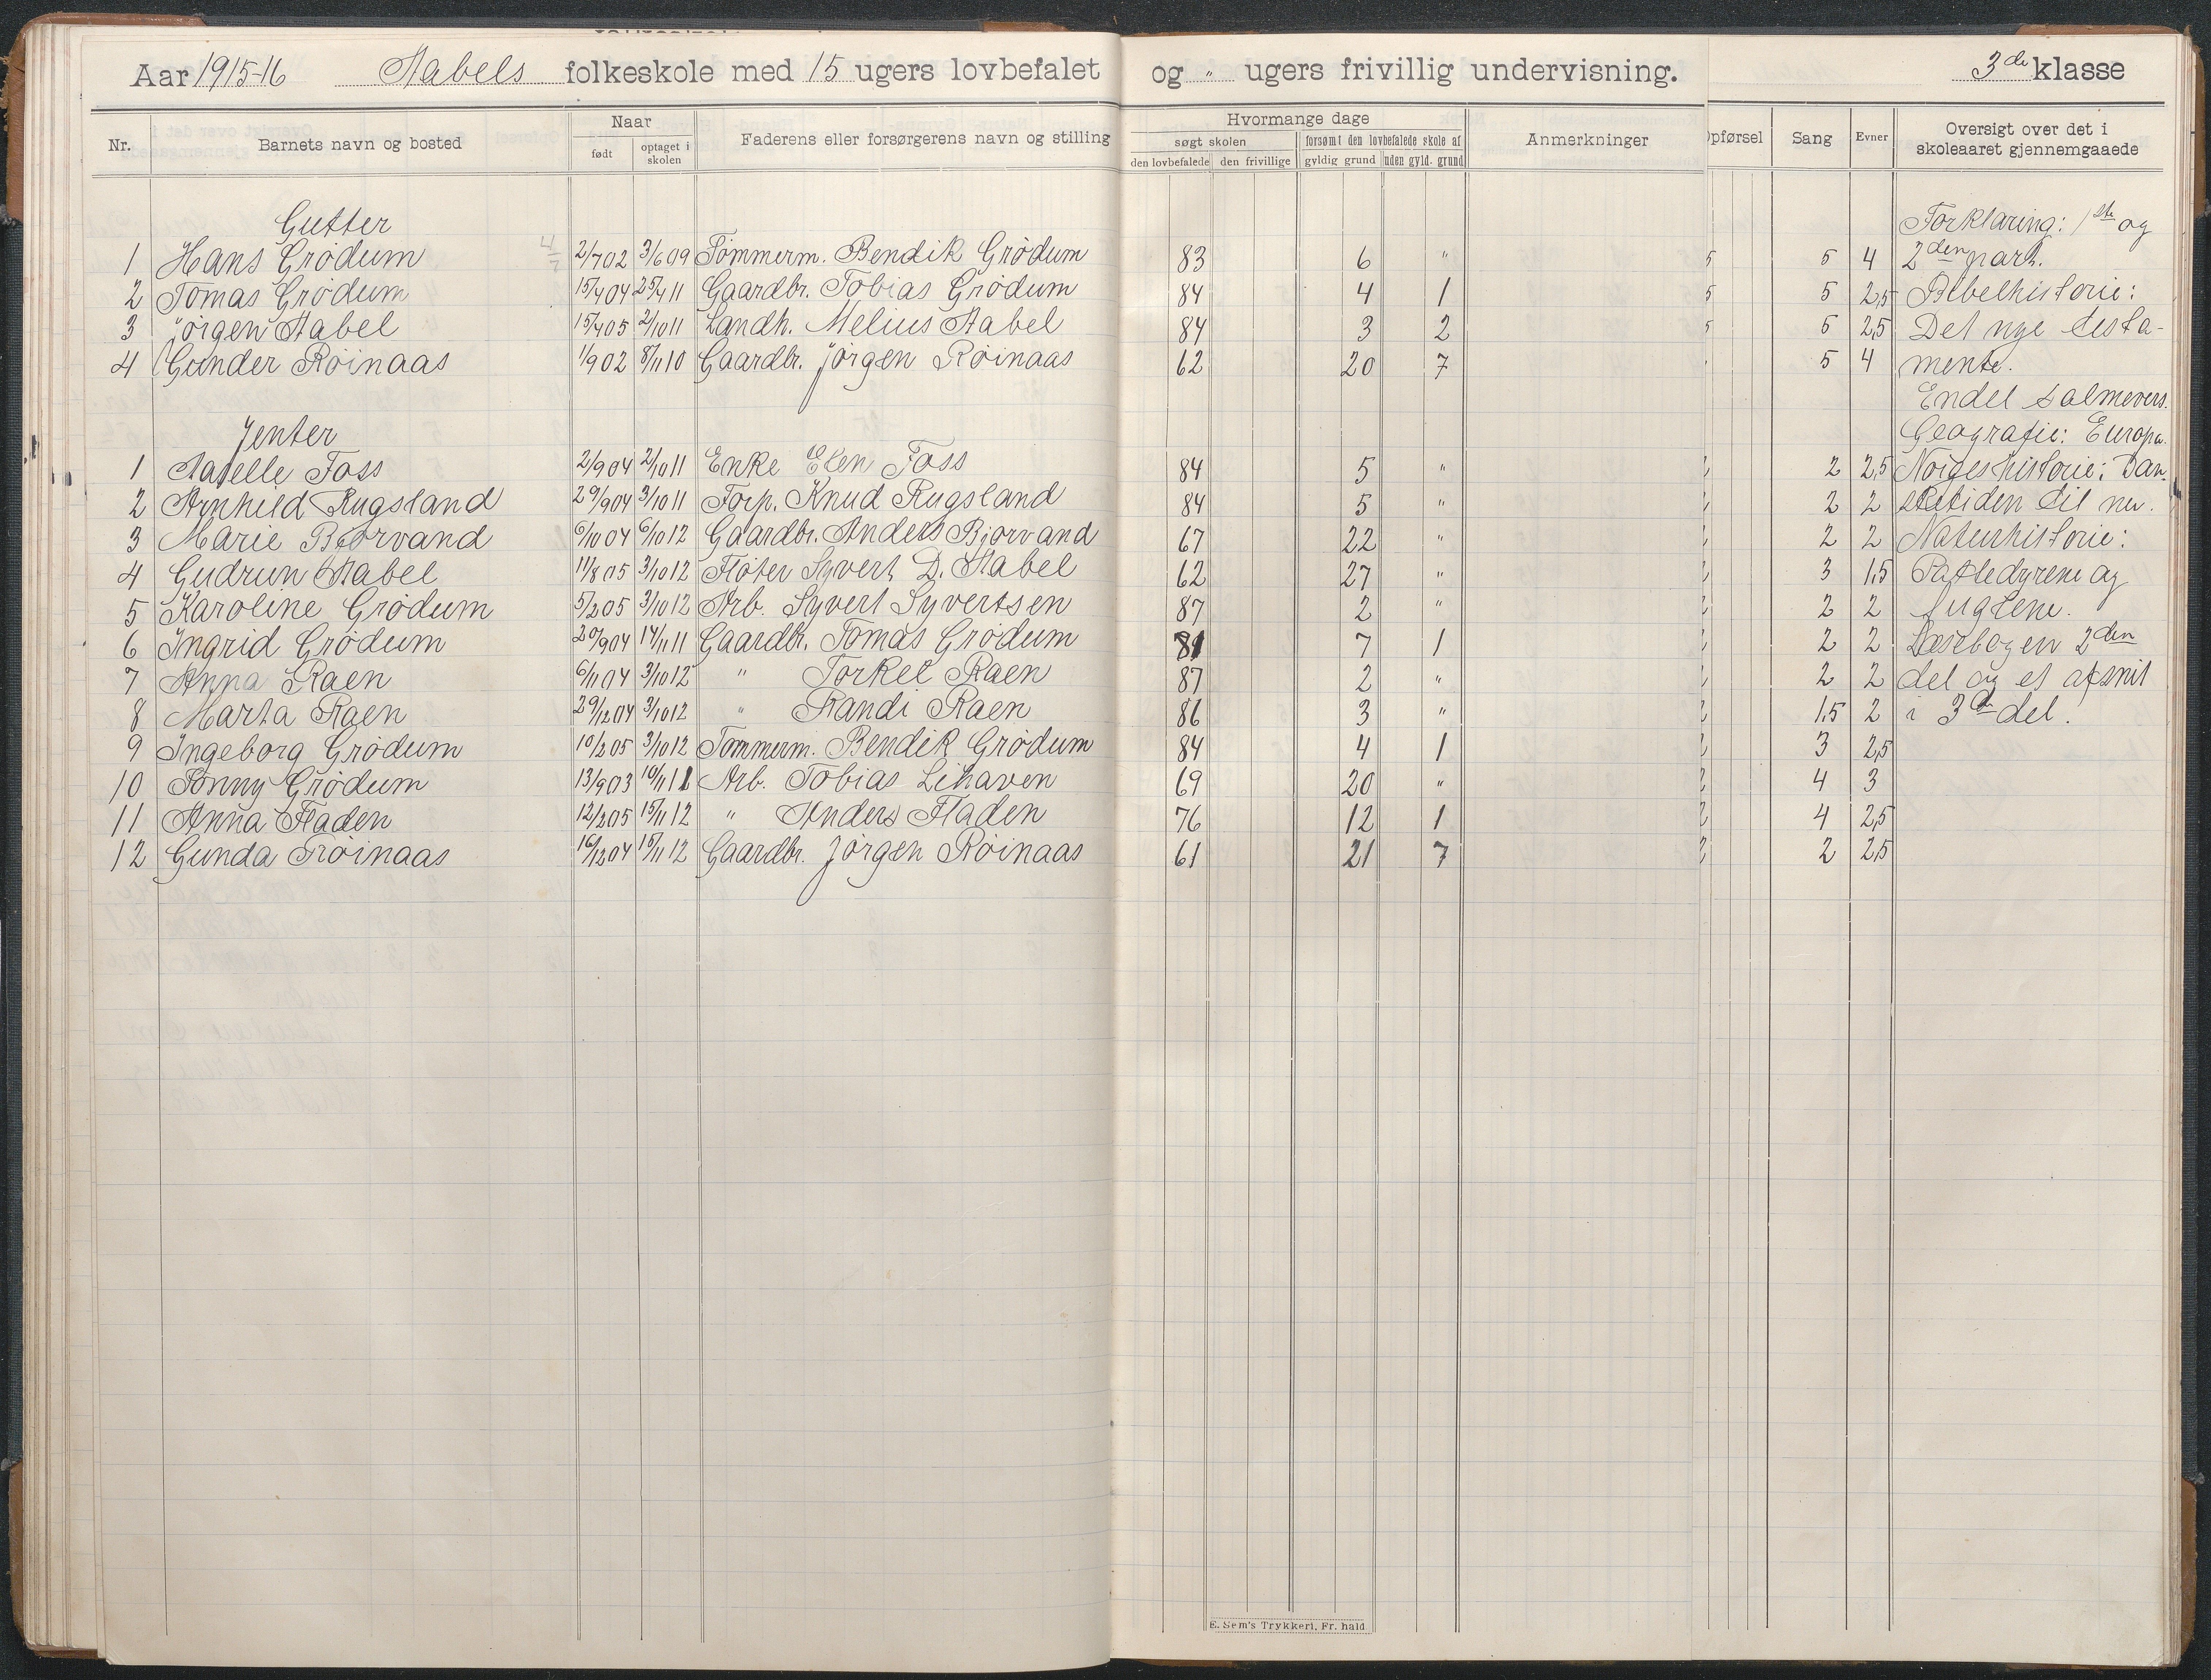 Aar 1915-16 Aabels folkeskole med 15 ugers lovbefalet og " ugers frivillig undervisning. 3de klasse
Nr. Barnets navn og bosted Naar født optaget i skolen Faderens eller forsørgerens navn og stilling Hvormange dage søgt skolen den lovbefalede den frivillige forsømt den lovbefalede skole af gyldig grund uden gyld. grund Anmerkninger Opførsel Sang Evner Oversigt over det i skoleaaret gjennemgaaede
Gutter Forklaring: 1ste og
1 Hans Grødum 2/7 02 3/6 09 Tømmerm. Bendik Grødum 83 6 " 5 5 4 2den part.
2 Tomas Grødum 15/4 04 25/4 11 Gaardbr. Tobias Grødum 84 4 1 5 5 2,5 Bibelhistorie:
3 Jørgen Aabel 15/4 05 2/10 11 Landh. Melius Aabel 84 3 2 5 5 2,5 Det nye testa-
4 Gunder Røinaas 1/9 02 8/11 10 Gaardbr. Jørgen Røinaas 62 20 7 5 4 mente.
Endel salmevers.
Jenter Geografie: Europa.
1 Aaselle Foss 2/9 04 2/10 11 Enke Elen Foss 84 5 " 2 2 2,5 Norges historie: Dan-
2 Arnhild Rugsland 29/9 04 3/10 11 Forp. Knud Rugsland 84 5 " 2 2 2 sketiden til nu.
3 Marie Bjorvand 6/10 04 6/10 12 Gaardbr. Anders Bjorvand 67 22 " 2 2 2 Naturhistorie:
4 Gudrun Aabel 11/8 05 3/10 12 Fløter Syvert D. Aabel 62 27 " 2 3 1,5 Pattedyrene og
5 Karoline Grødum 5/2 05 3/10 12 Arb. Syvert Syvertsen 87 2 " 2 2 2 fuglene.
6 Ingrid Grødum 20/9 04 14/11 11 Gaardbr. Tomas Grødum 81 7 1 2 2 2 Læsebogen 2den
7 Anna Raen 6/11 04 3/10 12 " Torkel Raen 87 2 " 2 2 2 del og et afsnit
8 Marta Raen 29/12 04 3/10 12 " Randi Raen 86 3 " 2 1,5 2 i 3d del.
9 Ingeborg Grødum 10/2 05 3/10 12 Tømmerm. Bendik Grødum 84 4 1 2 3 2,5
10 Tonny Grødum 13/9 03 10/11 11 Arb. Tobias Lihaven 69 20 " 2 4 3
11 Anna Fladen 12/2 05 15/11 12 " Anders Fladen 76 12 1 2 4 2,5
12 Gunda Røinaas 16/12 04 15/11 12 Gaardbr. Jørgen Røinaas 61 21 7 2 2 2,5
E. Sem's Trykkeri, Fr. hald